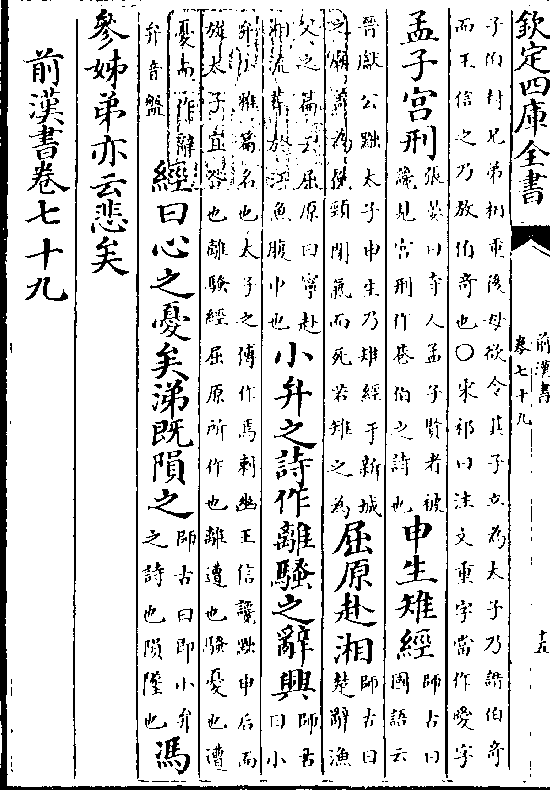 欽定四庫全書
前漢書
卷七十九
十五
子伯封兄弟相重後母欲令其子立為太子乃譖伯奇
而王信之乃放伯奇也○宋祁曰注文重字當作愛字
孟子宮刑張晏曰寺人孟子賢者被讒見宮刑作巷伯之詩也申生雉經師古曰國語云
晉獻公黜太子申生乃雉經于新城之廟蓋為俛頸閉氣而死若雉之為屈原赴湘師古曰楚辭漁
父之篇云屈原曰寧赴湘流葬於江魚腹中也小弁之詩作離騷之辭興師古曰小
弁小雅篇名也太子之傅作焉刺幽王信讒黜申后而
放太子宜咎也離騷經屈原所作也離遭也騷憂也遭
憂而作辭弁音盤經曰心之憂矣涕既隕之師古曰即小弁之詩也隕墜也馮
參姊弟亦云悲矣
前漢書卷七十九